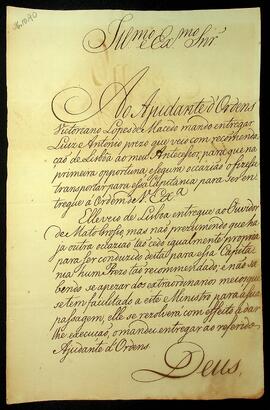 Illmo e Exmo Snr
Ao Ajudante d'Ordens
Victoriano Lopes de Macedo mando entregar
Luiz e Antonio prezo que veio com recomenda
ção de Lisboa ao meu Antecessor, para que na
primeira opportuna, e segura occazião o fizesse
transportar para essa Capitania para Ser en
tregue a Ordem de V. Exa
Elle veio de Lisboa entregue ao Ouvidor
de Mato Grosso, mas não prezumindo que ha
ja outra occazião tão igualmente propria
para ser conduzido desta para essa Capita
nia hum Prezo tão recommendado; e não sa
bendo se apezar dos extraordinarios meios que
se tem facultado a este Ministro para a sua
passagem, elle se rezolverá com effeito a dar
lhe execução, o mandei entregar ao referido
Ajudante d'Ordens.
Deus,